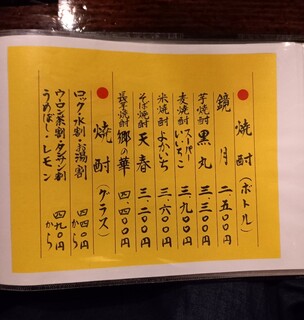 焼酎(ボトル)
鏡月 二、五〇〇円
芋焼酎 黒丸 三、三〇〇円
麦焼酎 スーパーいいちこ 三、九〇〇円
米焼酎 よかいち 三、六〇〇円
そば焼酎 天春 三、二〇〇円
長芋焼酎 郷の華 四、四〇〇円
焼酎(グラス)
ロック・水割・お湯割 四四〇円から
ウーロン茶割・タンサン割
うめぼし・レモン 四九〇円から